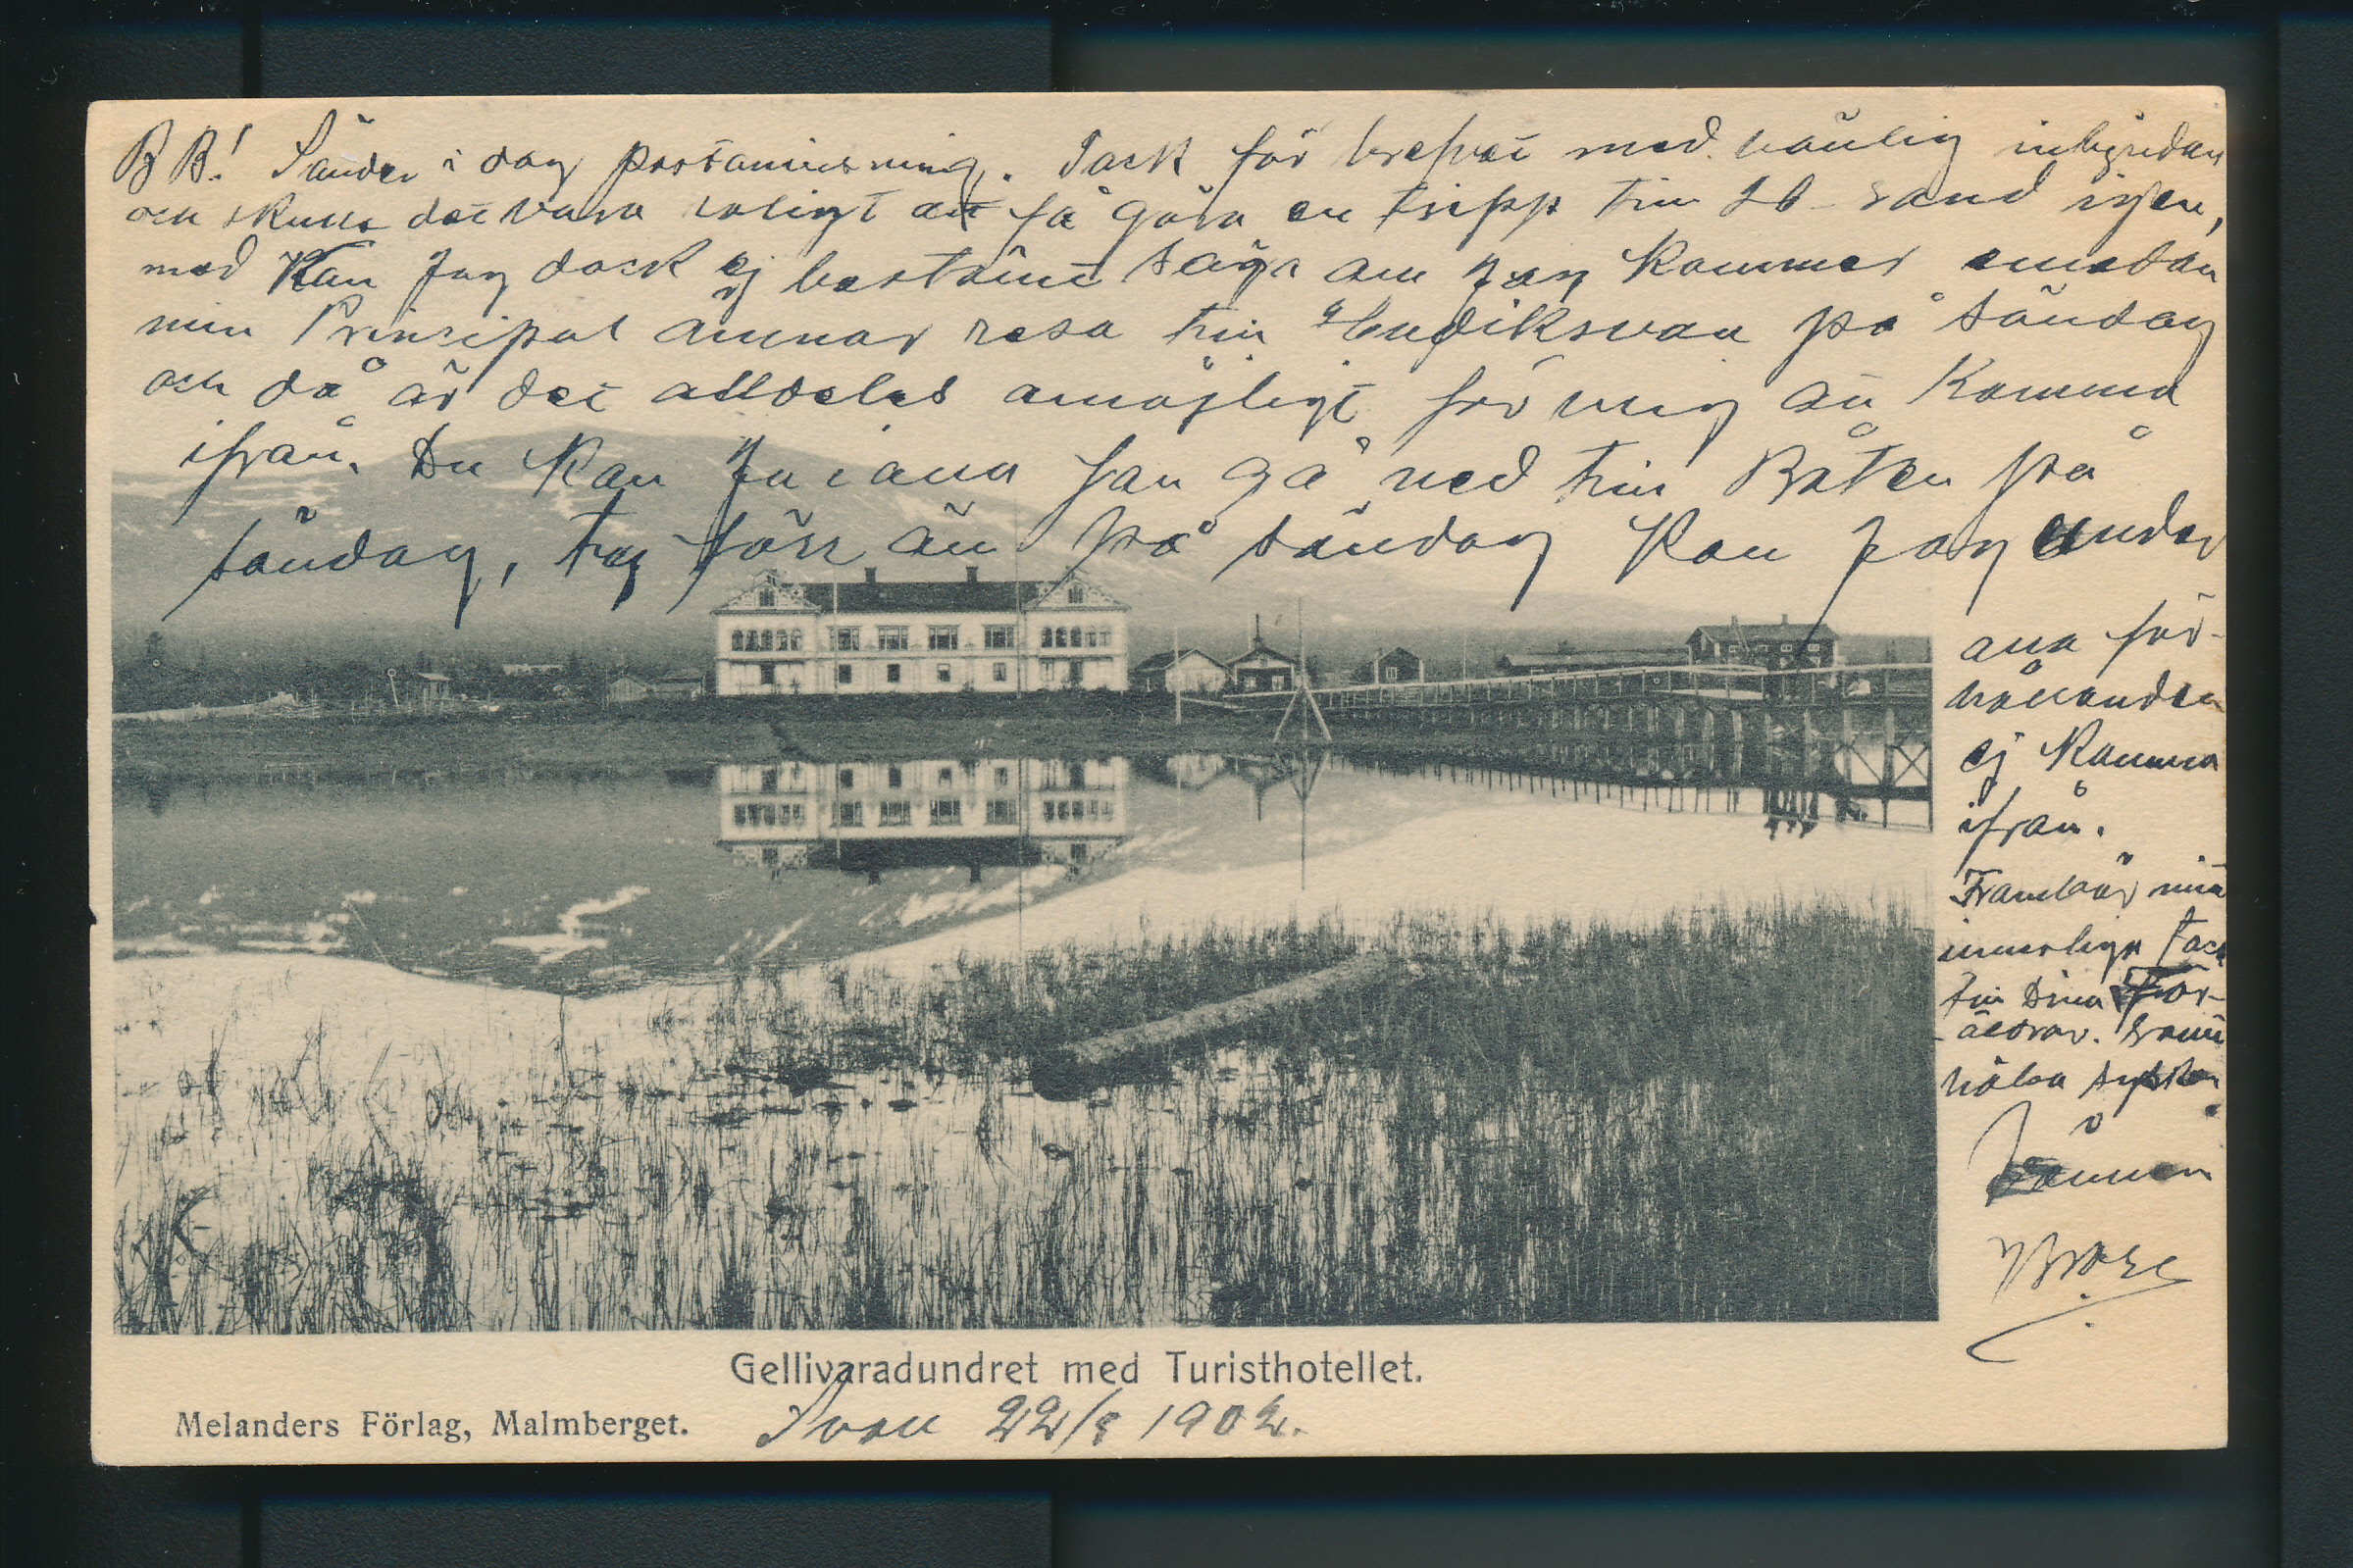 B B! Sänder i dag postanvisning. Tack för brefvet med vänlig inbjudan
och skulle det vara roligt att få göra en tripp till sand igen,
med kan jag dock ej bestämt säga om jag kommer emedan
min Principal ämnar resa till Hudiksvall på söndag
och då är det alldeles omöjligt för mig att komma
ifrån. Du kan ju i alla fall gå ned till Båten på
söndag, ty förr än på söndag kan jag under
alla för-
hållanden
ej komma
ifrån.
Frambär mitt
innerliga tack
till Dina För-
äldrar. samt
hälsa syster
Vännen
Gellivaradundret med Turisthotellet.
Melanders Förlag, Malmberget. 22/8 1902.